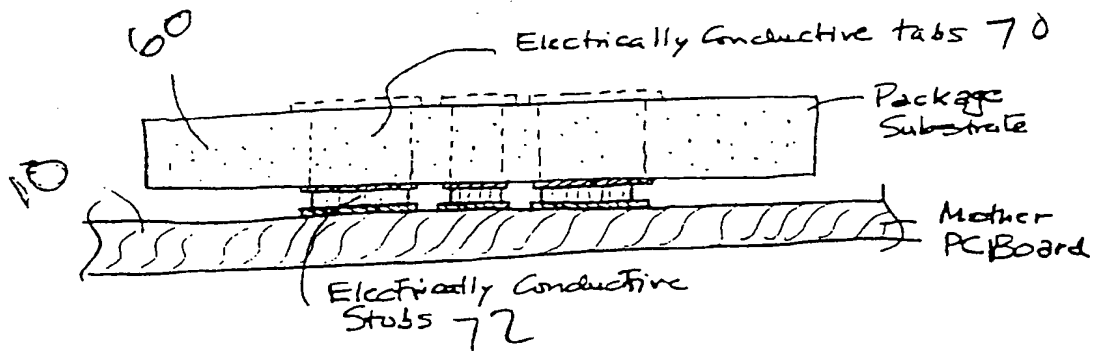 60
Electrically Conductive tabs 70
Package
Substrate
10
Mother
PC Board
Electrically Conductive
Stubs 72